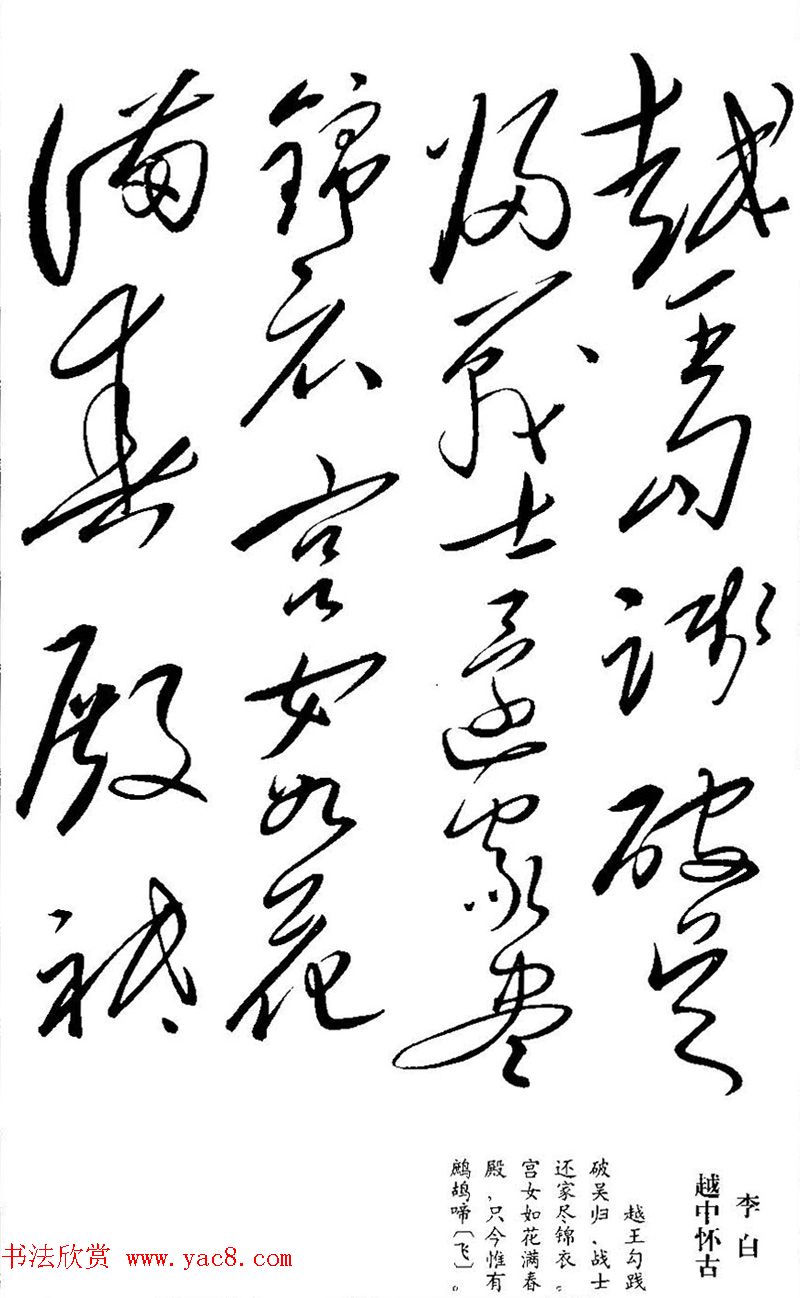 越王勾踐破吳
歸戰士還家盡
錦衣宮女如花
滿春殿祗
李白
越中怀古
越王勾践
破吴归、战士
还家尽锦衣。
宫女如花满春
殿,只今惟有
鹧鸪啼〔飞〕。
书法欣赏 www.yac8.com